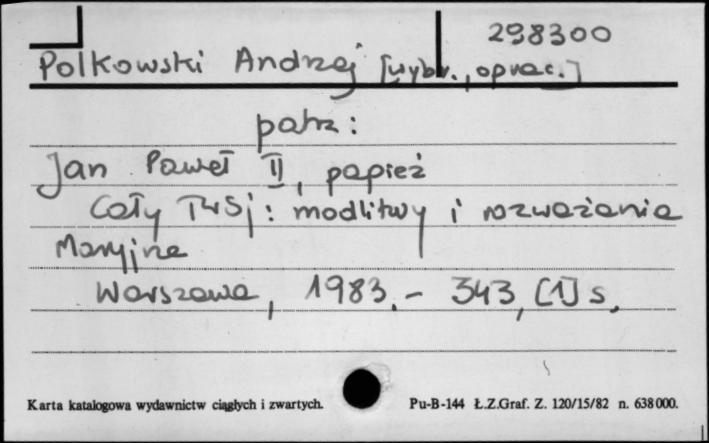 298300
Polkowski Andrzej [wybr., oprac.]
patrz:
Jan Paweł II, papież
Cały Twój: modlitwy i rozważania
Maryjne
Warszawa, 1983. - 343, [1] s.
Karta katalogowa wydawnictw ciągłych i zwartych.
Pu-B-144 Ł.Z.Graf. Z. 120/15/82 n. 638000.